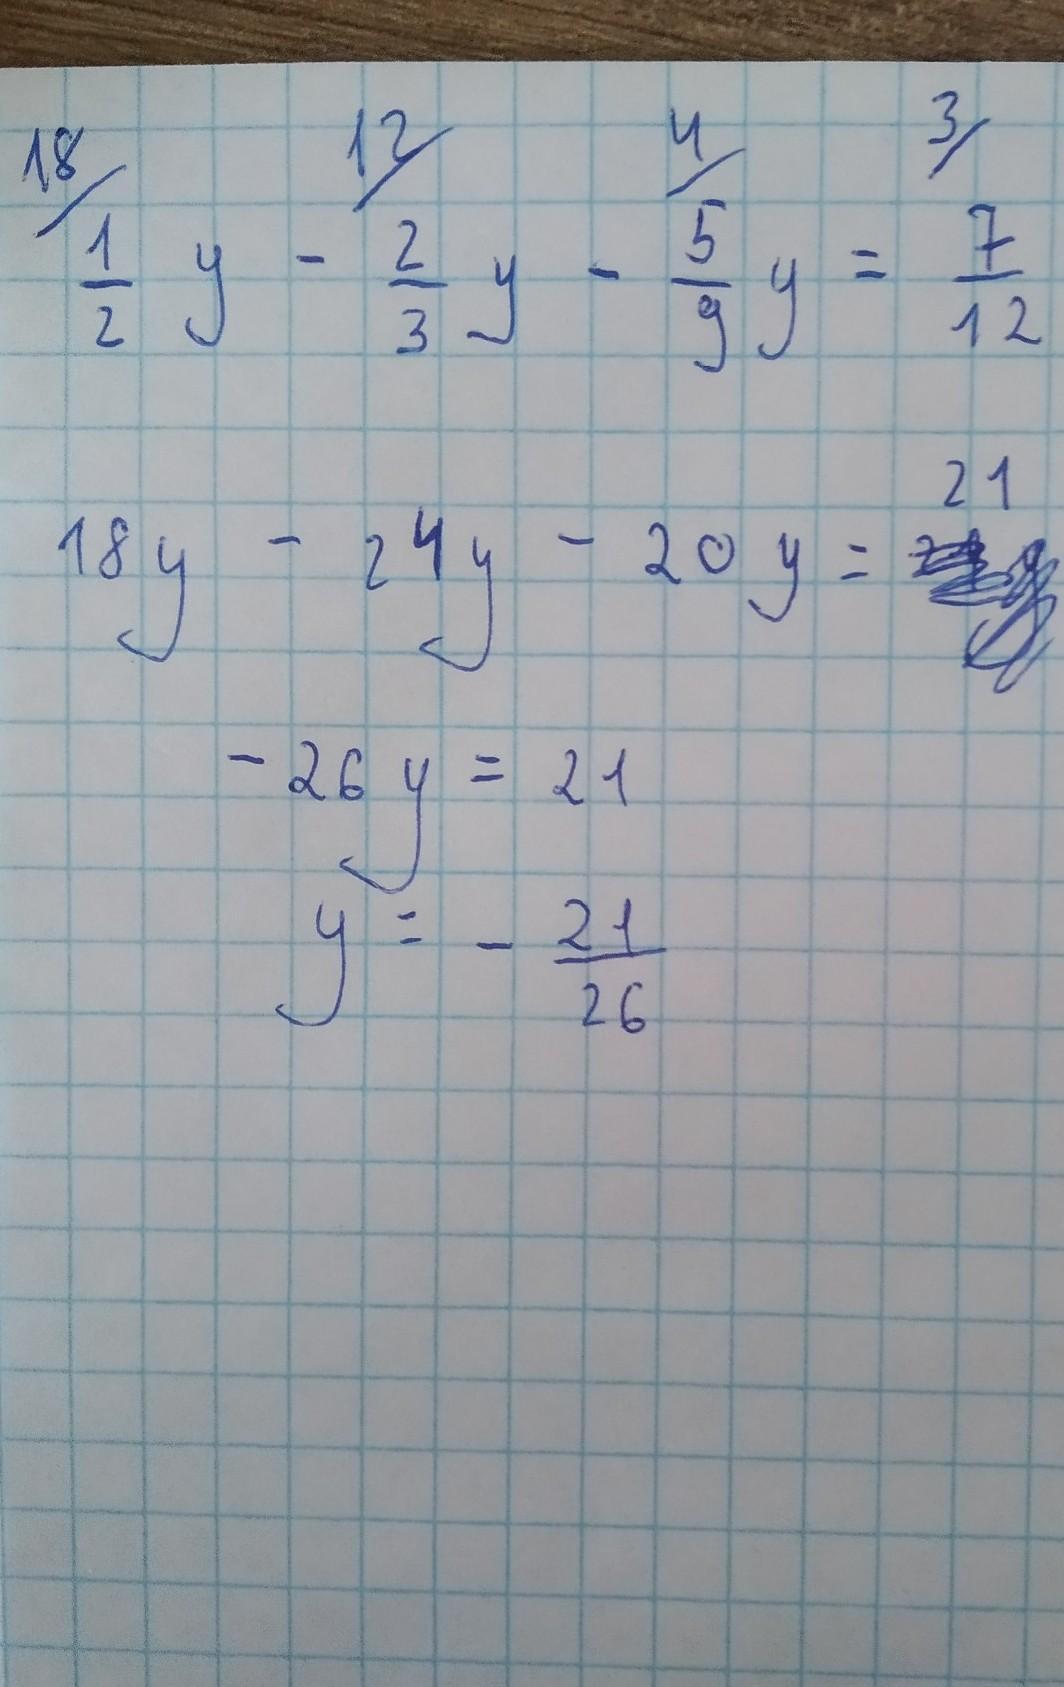 18/ 12/ 4/ 3/
1/2 y - 2/3 y - 5/9 y = 7/12
18y - 24y - 20y = 21
- 26y = 21
y = - 21/26